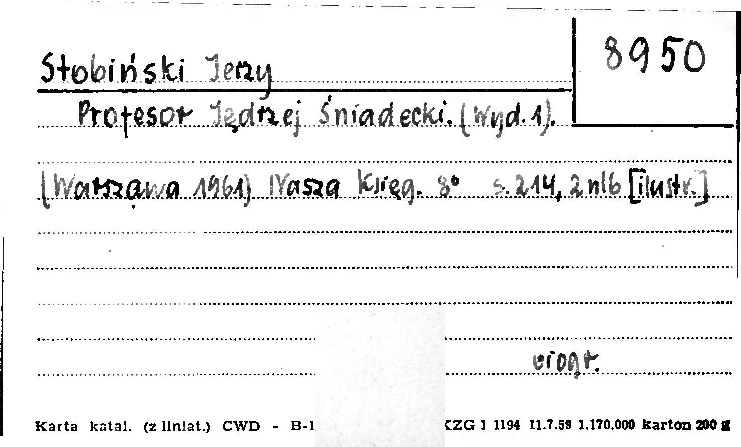 8950
Stobiński Jerzy
Profesor Jędrzej Śniadecki. (Wyd. 1).
(Warszawa 1961) Nasza Księg. 8° s. 214, 2 nlb [ilustr.]
Karta katal. (z liniat.) CWD - B-1 KZG 1 1194 11.7.59 1.170.000 karton 200 g